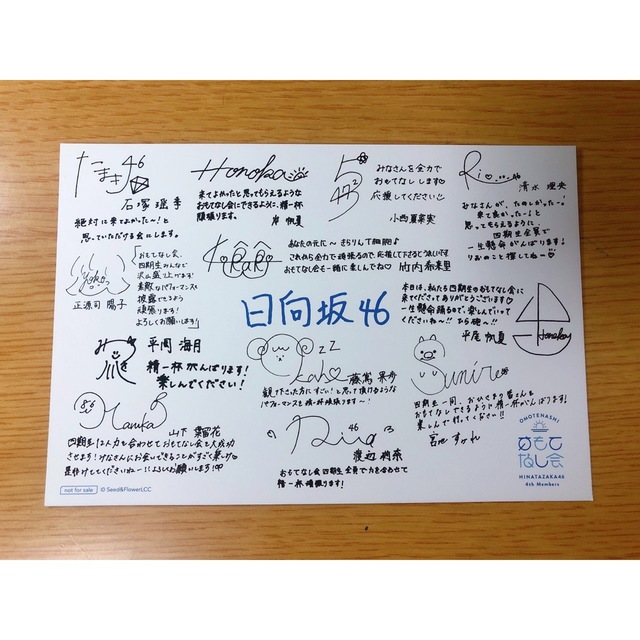 たまき46
石塚瑶季
絶対に来てよかった〜！と
思っていただける会にします。
Honoka
来てよかったと思ってもらえるような
おもてなし会にできるように、精一杯
頑張ります。
岸 帆夏
52
46
みなさんを全力で
おもてなしします♡
応援してください☺
小西夏菜実
Rio...46
清水 理央
みなさんが、たのしかった〜!
来て良かった〜！と
思ってもらえるように
四期生全員で
一生懸命がんばります！
りおのこと推してね♡
Yoko
正源司 陽子
「おもてなし会、
四期生みんなで
沢山盛り上げます！
素敵なパフォーマンスを
披露できるよう
頑張ります！
よろしくお願いします！」
KiRaRi
あなたの元に〜 きらりんT細胞♪
これから全力で頑張るので、応援して下さるとうれしいです
おもてなし会も一緒に楽しんでね♡
竹内希来里
日向坂46
本日は、私たち四期生のおもてなし会に
来てくださりありがとうございます♡
一生懸命踊るので、楽しんでいって
くださいね〜!!
平尾 帆夏
Honoka
みつき
平岡 海月
精一杯がんばります！
楽しんでください！
zzz
Kaho
藤嶌 果歩
観て下さった方に「すごい！」と思って頂けるような
パフォーマンスを精一杯頑張ります〜！
Sumire
四期生一同、おひさまの皆さんを
おもてなしできるように精一杯がんばります！
楽しんで行ってください!!
宮地 すみれ
Haruka
山下 葉留花
四期生12人力を合わせておもてなし会を大成功
させます！みなさんにお会いできることがすごく楽しみ♡
見届けてくださいねー！よろしくお願いします！
Rina 46
渡辺莉奈
おもてなし会 四期生全員で力を合わせて
精一杯頑張ります！
OMOTENASHI
おもて
なし会
HINATAZAKA46
4th Members
not for sale
© Seed&FlowerLCC